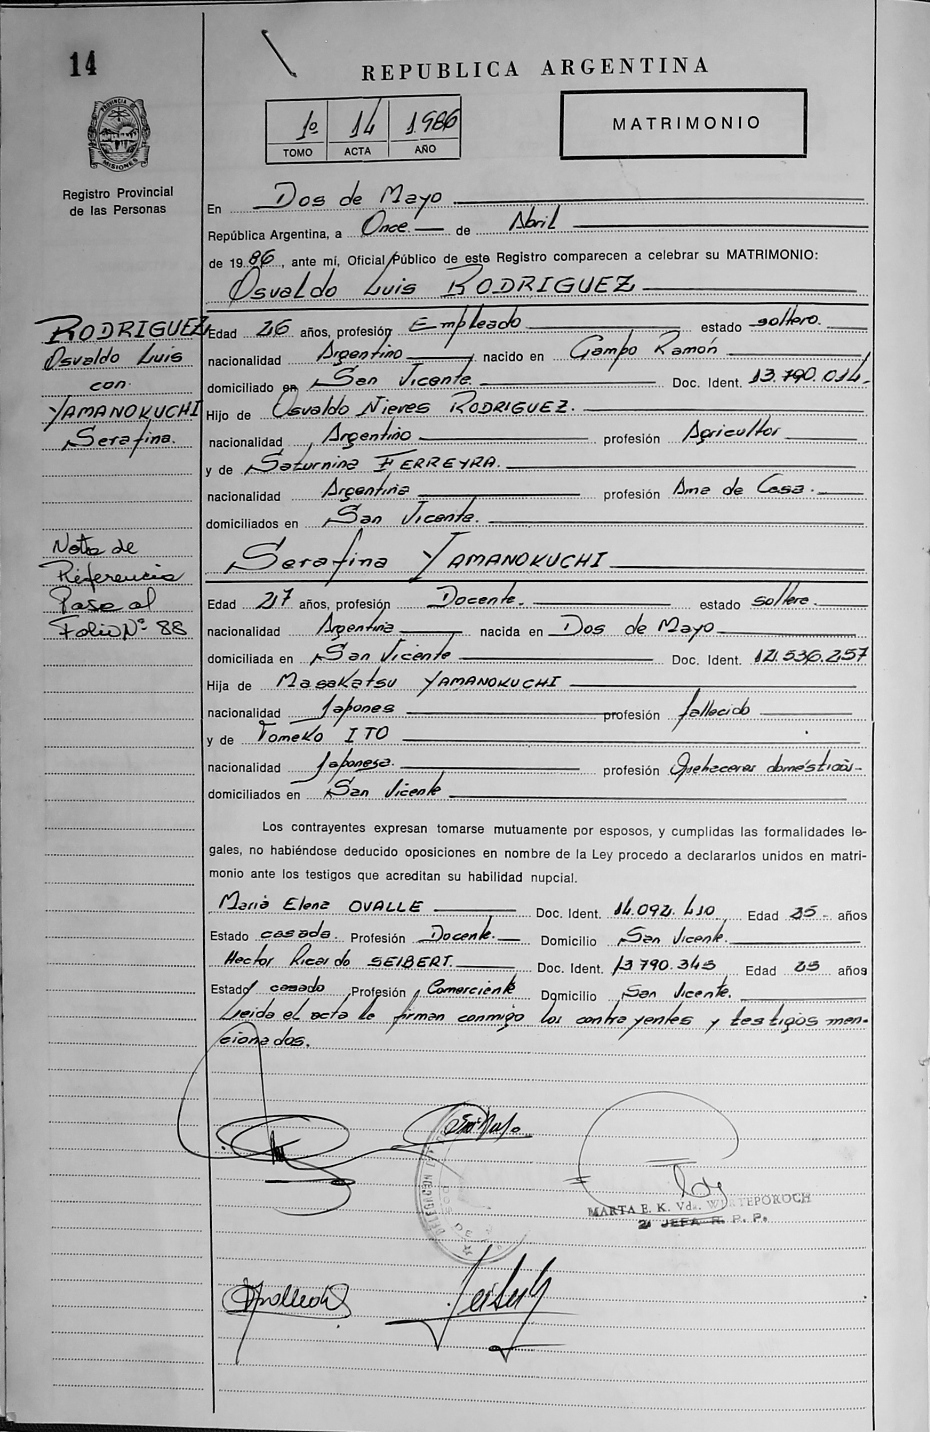 14
REPUBLICA ARGENTINA
1º 14 1.986
TOMO ACTA AÑO
MATRIMONIO
PROVINCIA DE MISIONES
Registro Provincial
de las Personas
En Dos de Mayo
República Argentina, a Once de Abril
de 1986, ante mí, Oficial Público de este Registro comparecen a celebrar su MATRIMONIO:
Osvaldo Luis RODRIGUEZ
RODRIGUEZ
Osvaldo Luis
con
YAMANOKUCHI
Serafina.
Edad 26 años, profesión Empleado estado soltero.
nacionalidad Argentino nacido en Campo Ramón
domiciliado en San Vicente. Doc. Ident. 13.790.014
Hijo de Osvaldo Nieves RODRIGUEZ.
nacionalidad Argentino profesión Agricultor
y de Saturnina FERREYRA.
nacionalidad Argentina profesión Ama de Casa.
domiciliados en San Vicente.
Nota de
Referencia
Pase al
Folio Nº 88
Serafina YAMANOKUCHI
Edad 27 años, profesión Docente. estado soltera.
nacionalidad Argentina nacida en Dos de Mayo
domiciliada en San Vicente Doc. Ident. 12.536.257
Hija de Masakatsu YAMANOKUCHI
nacionalidad Japones profesión fallecido
y de Tomeko ITO
nacionalidad Japonesa. profesión Quehaceres domésticos
domiciliados en San Vicente
Los contrayentes expresan tomarse mutuamente por esposos, y cumplidas las formalidades le-
gales, no habiéndose deducido oposiciones en nombre de la Ley procedo a declararlos unidos en matri-
monio ante los testigos que acreditan su habilidad nupcial.
María Elena OVALLE Doc. Ident. 14.092.410 Edad 25 años
Estado casada. Profesión Docente. Domicilio San Vicente.
Hector Ricardo SEIBERT. Doc. Ident. 13 790.345 Edad 25 años
Estado casado Profesión Comerciente Domicilio San Vicente.
Leida el acta le firman conmigo los contrayentes y testigos men-
cionados.
DELEGACION
MARTA E. K. Vda.
JEFA R. P. P.